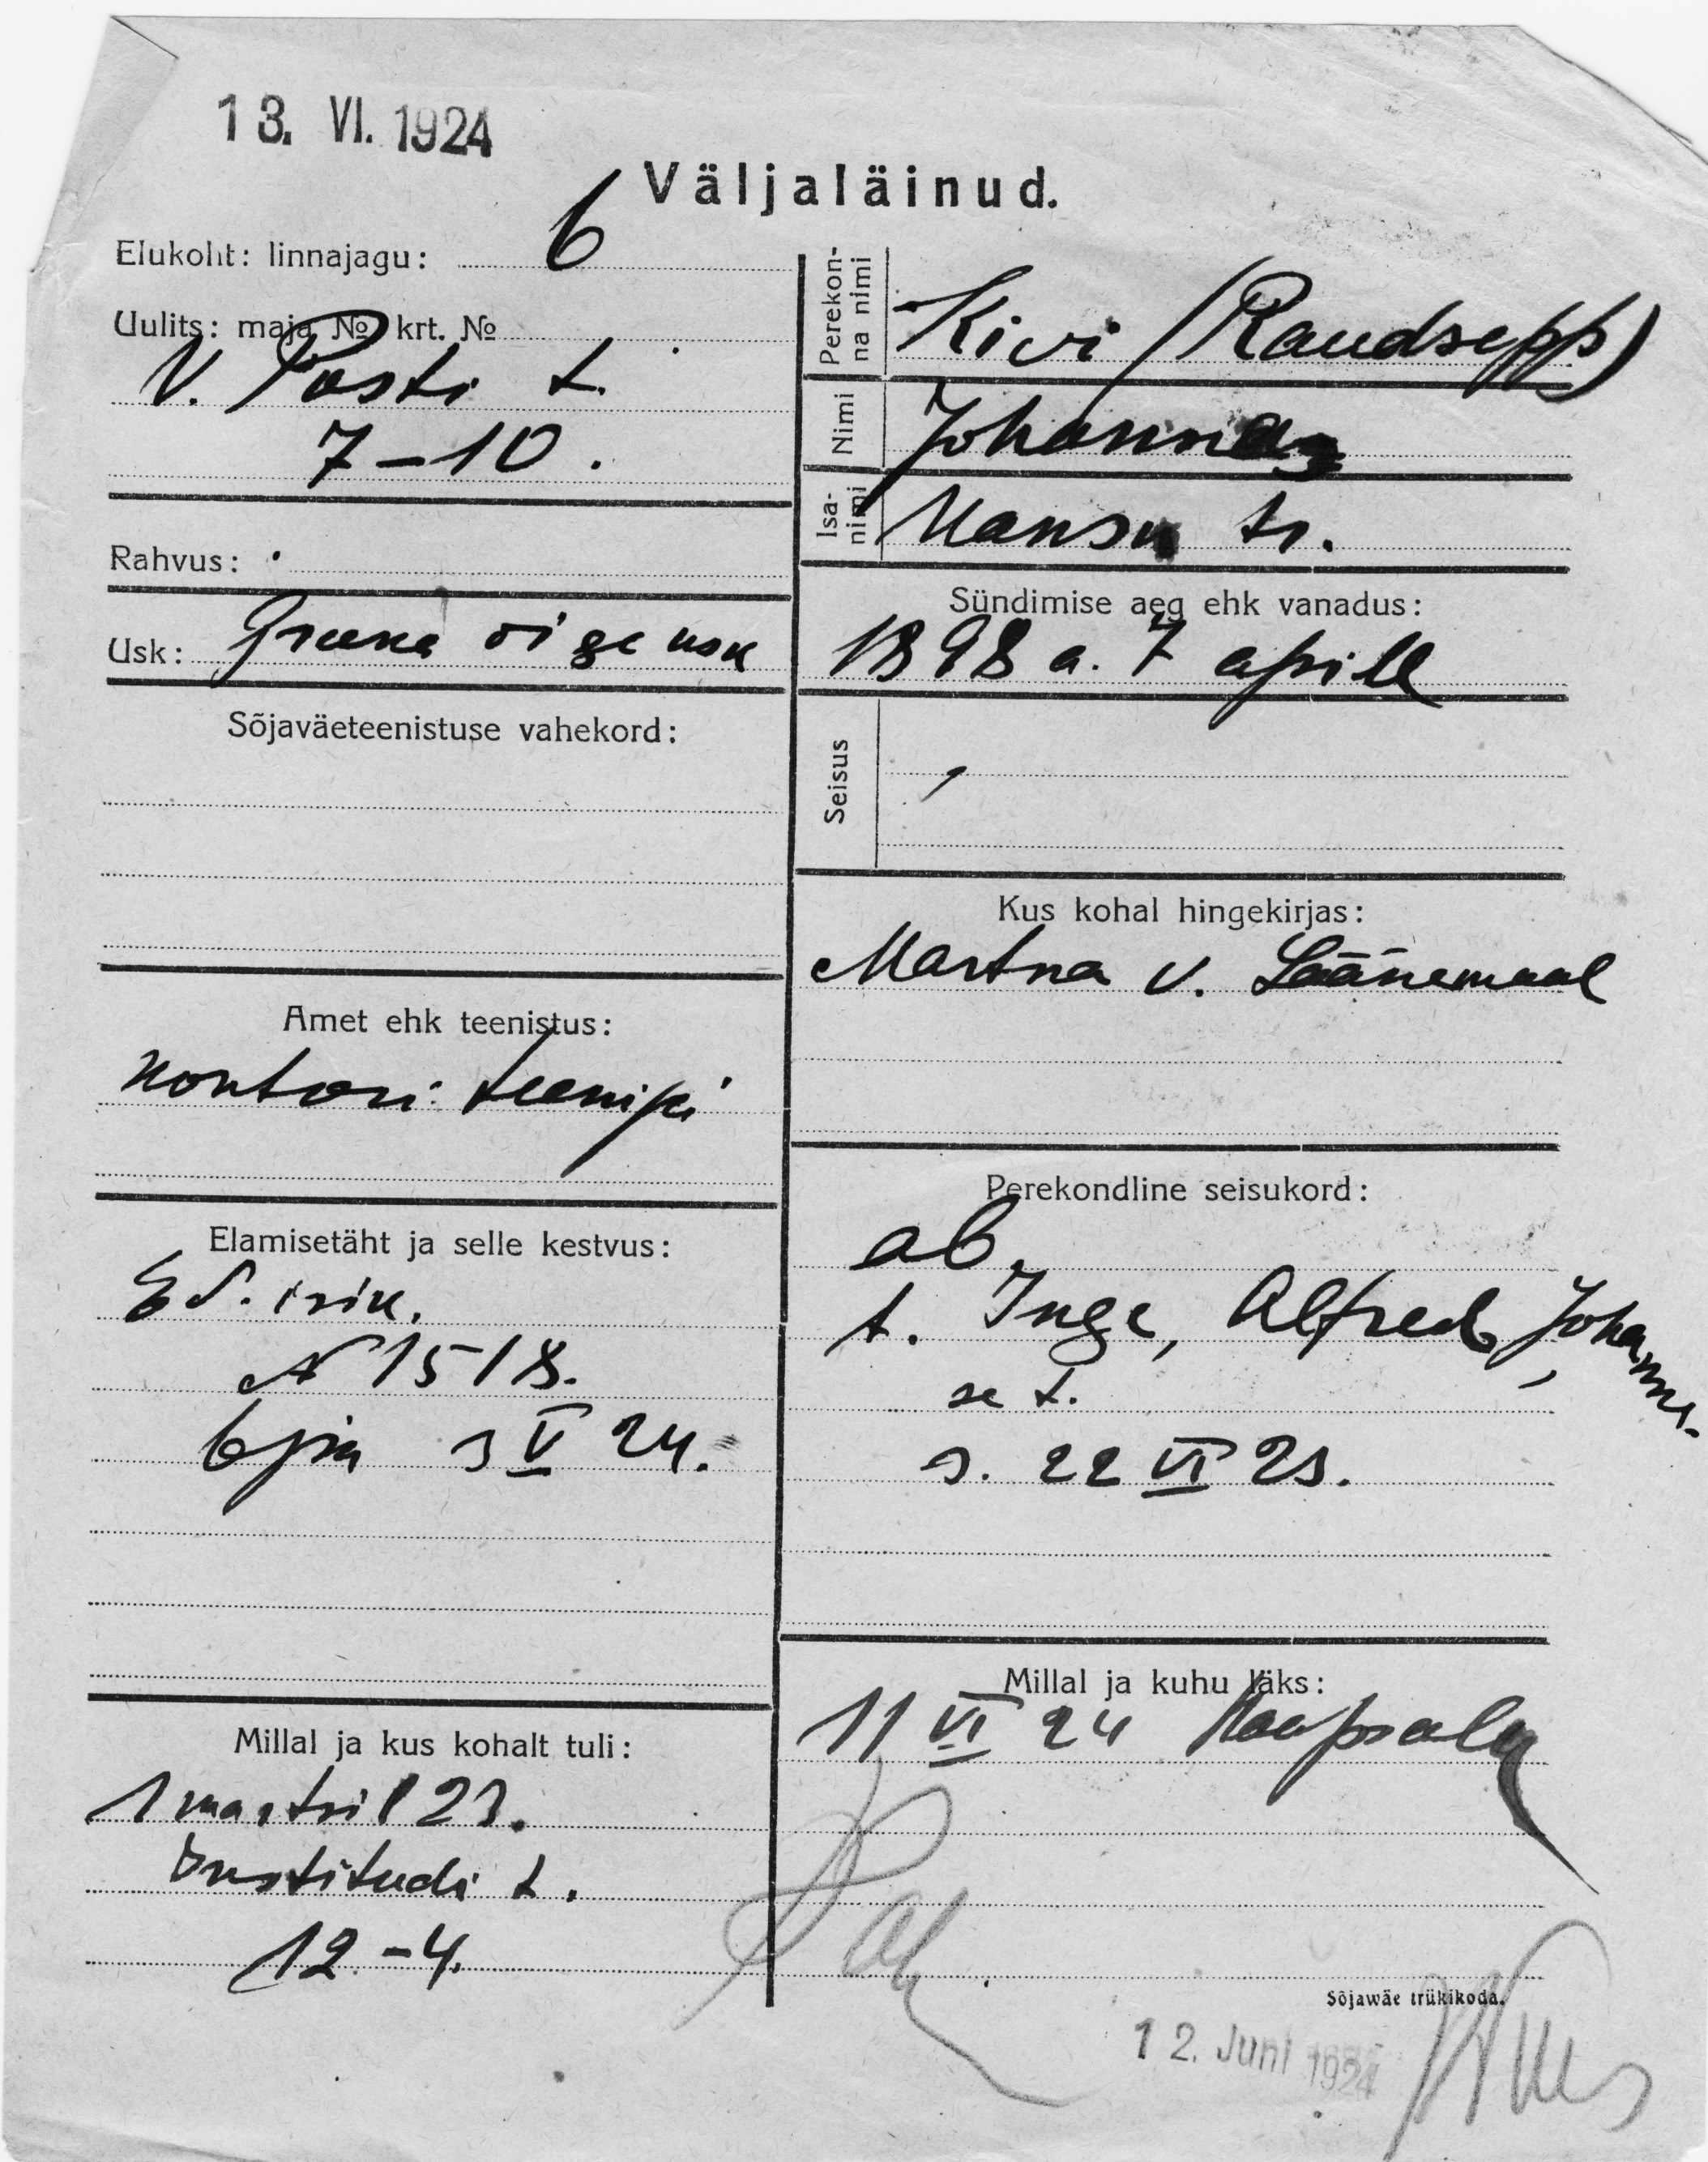 13. VI. 1924
Väljaläinud.
Elukoht: linnajagu: 6
Uulits: maja № krt. №
V. Posti t.
7–10.
Rahvus:
Usk: Greeka õige usu
Sõjaväeteenistuse vahekord:
Amet ehk teenistus:
kontori teenija
Elamisetäht ja selle kestvus:
isik.
N 1518.
6 jsk 3 V 24.
Millal ja kus kohalt tuli:
1 martsil 23.
Institudi t.
12–4.
Perekonna nimi
Kivi (Raudsepp)
Nimi
Johannes
Isanimi
Hansu tr.
Sündimise aeg ehk vanadus:
1898 a. 7 aprill
Seisus
Kus kohal hingekirjas:
Martna v. Läänemaal
Perekondline seisukord:
ab.
t. Inge, Alfred, Johanne-
se t.
s. 22 VI 23.
Millal ja kuhu läks:
11 VI 24 Haapsalu
Sõjawäe trükikoda.
12. Juni 1924